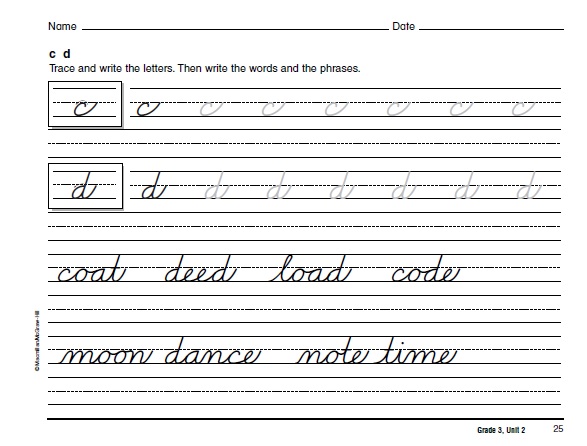 Name Date
c d
Trace and write the letters. Then write the words and the phrases.
c c c c c c c c
d d d d d d d d
coat deed load code
moon dance note time
© Macmillan/McGraw-Hill
Grade 3, Unit 2 25